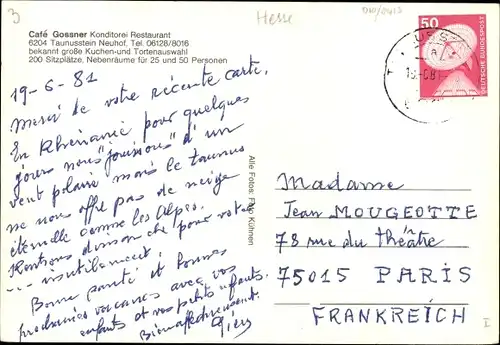 3
Hesse
Café Gossner Konditorei Restaurant
6204 Taunusstein Neuhof, Tel. 06128/8016
bekannt große Kuchen- und Tortenauswahl
200 Sitzplätze, Nebenräume für 25 und 50 Personen
50
DEUTSCHE BUNDESPOST
19-6-81
Merci de votre récente carte.
En Rhénanie pour quelques
jours nous "jouissons" d'un
vent polaire mais le taunus
ne nous offre pas de neige
éternelle comme les Alpes.
Rentrons dimanche pour voter
... inutilement!
Bonne santé et bonnes
prochaines vacances avec vos
enfants et vos petits enfants.
Bien affectueusement.
Alle Fotos: Kühnen
Madame
Jean MOUGEOTTE
73 rue du théatre
75015 PARIS
FRANKREICH
I